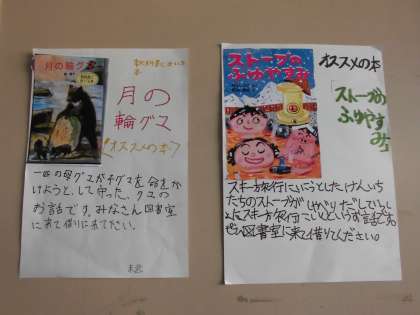 月の輪グマ
月の
輪グマ
(オススメの本)
一匹の母グマが子グマを命をか
けようと、して守った、クマの
お話です。みなさん図書室
に来て借りに来て下さい。
ストーブの
ふゆやすみ
オススメの本
「ストーブの
ふゆやす
み」
スキー旅行にいこうとした、けんいち
たちのストーブが しゃべりだして
スキー旅行
ぜひ図書室に来て借りてください。